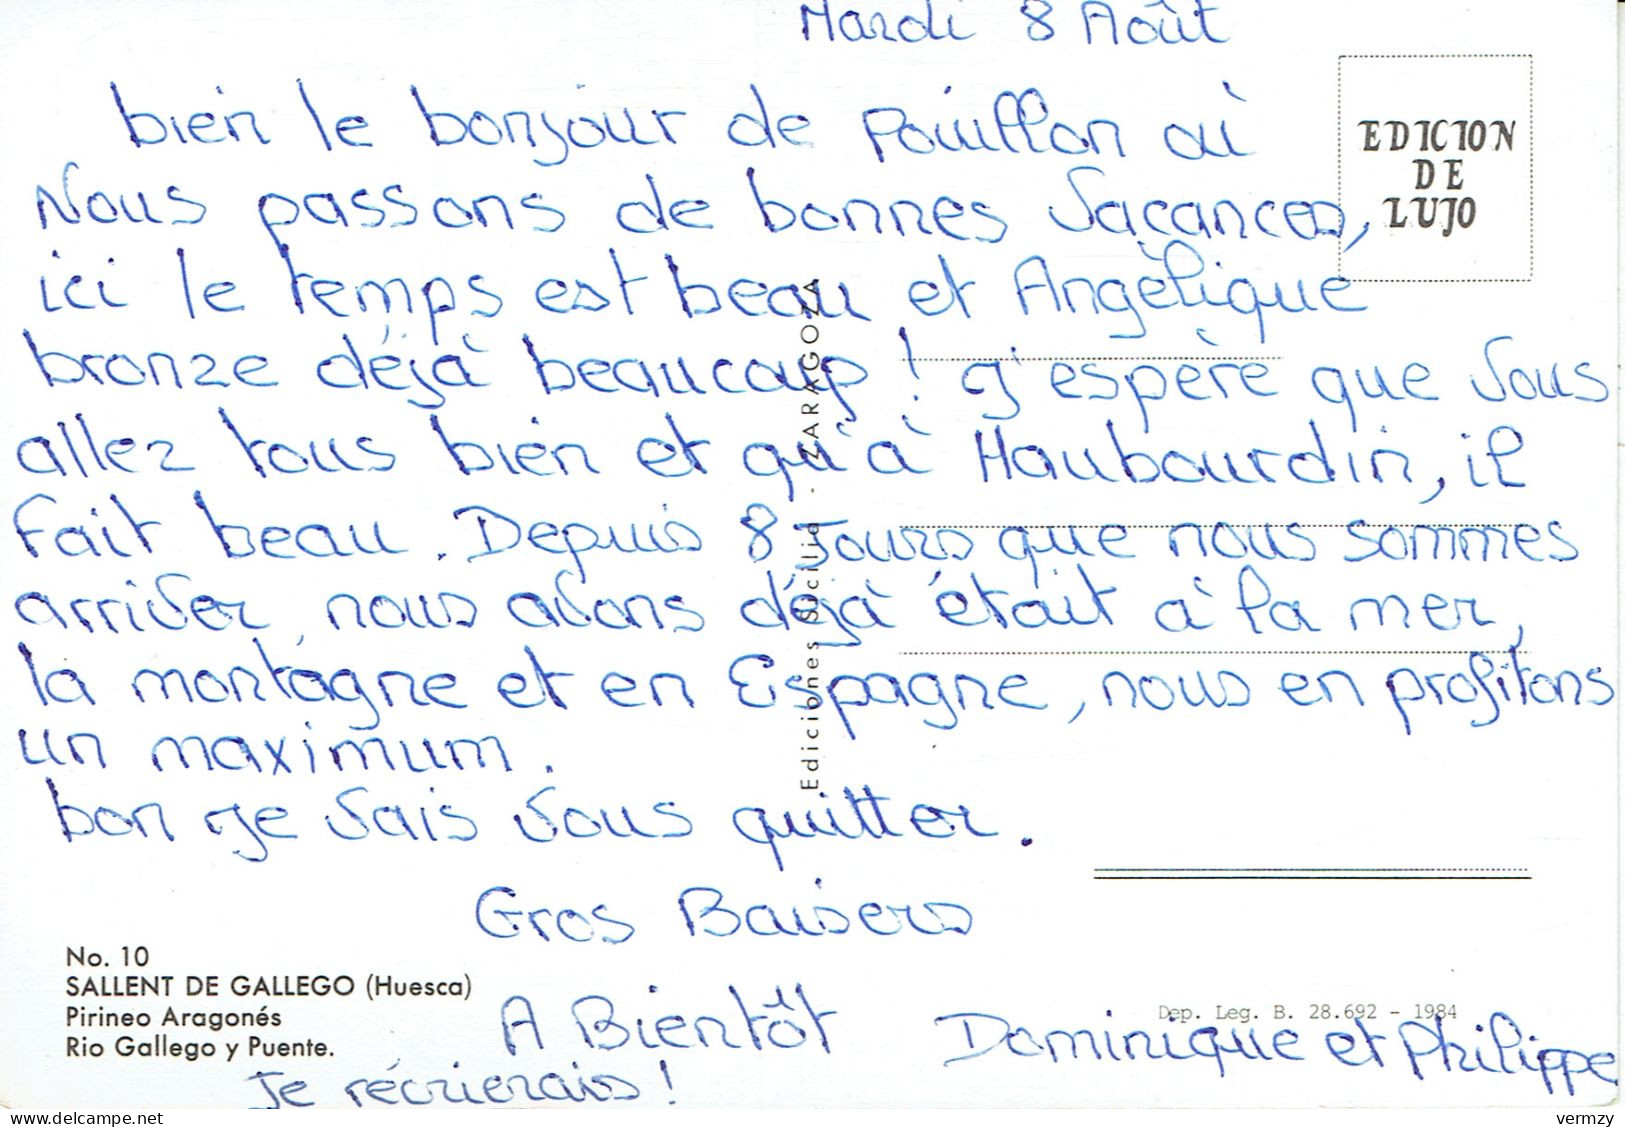 Mardi 8 Août
bien le bonjour de Pouillon où
Nous passons de bonnes Vacances,
ici le temps est beau et Angélique
bronze déjà beaucoup ! J'espère que Vous
allez tous bien et qu'à Haubourdin, il
fait beau. Depuis 8 Jours que nous sommes
arriver, nous avons déjà était à la mer,
la montagne et en Espagne, nous en profitons
un maximum.
bon Je Vais Vous quitter.
Gros Baisers
A Bientôt Dominique et Philippe
Je réécrierais !
EDICION
DE
LUJO
Ediciones Sicilia - ZARAGOZA
No. 10
SALLENT DE GALLEGO (Huesca)
Pirineo Aragonés
Rio Gallego y Puente.
Dep. Leg. B. 28.692 - 1984
delcampe.net
vermzy